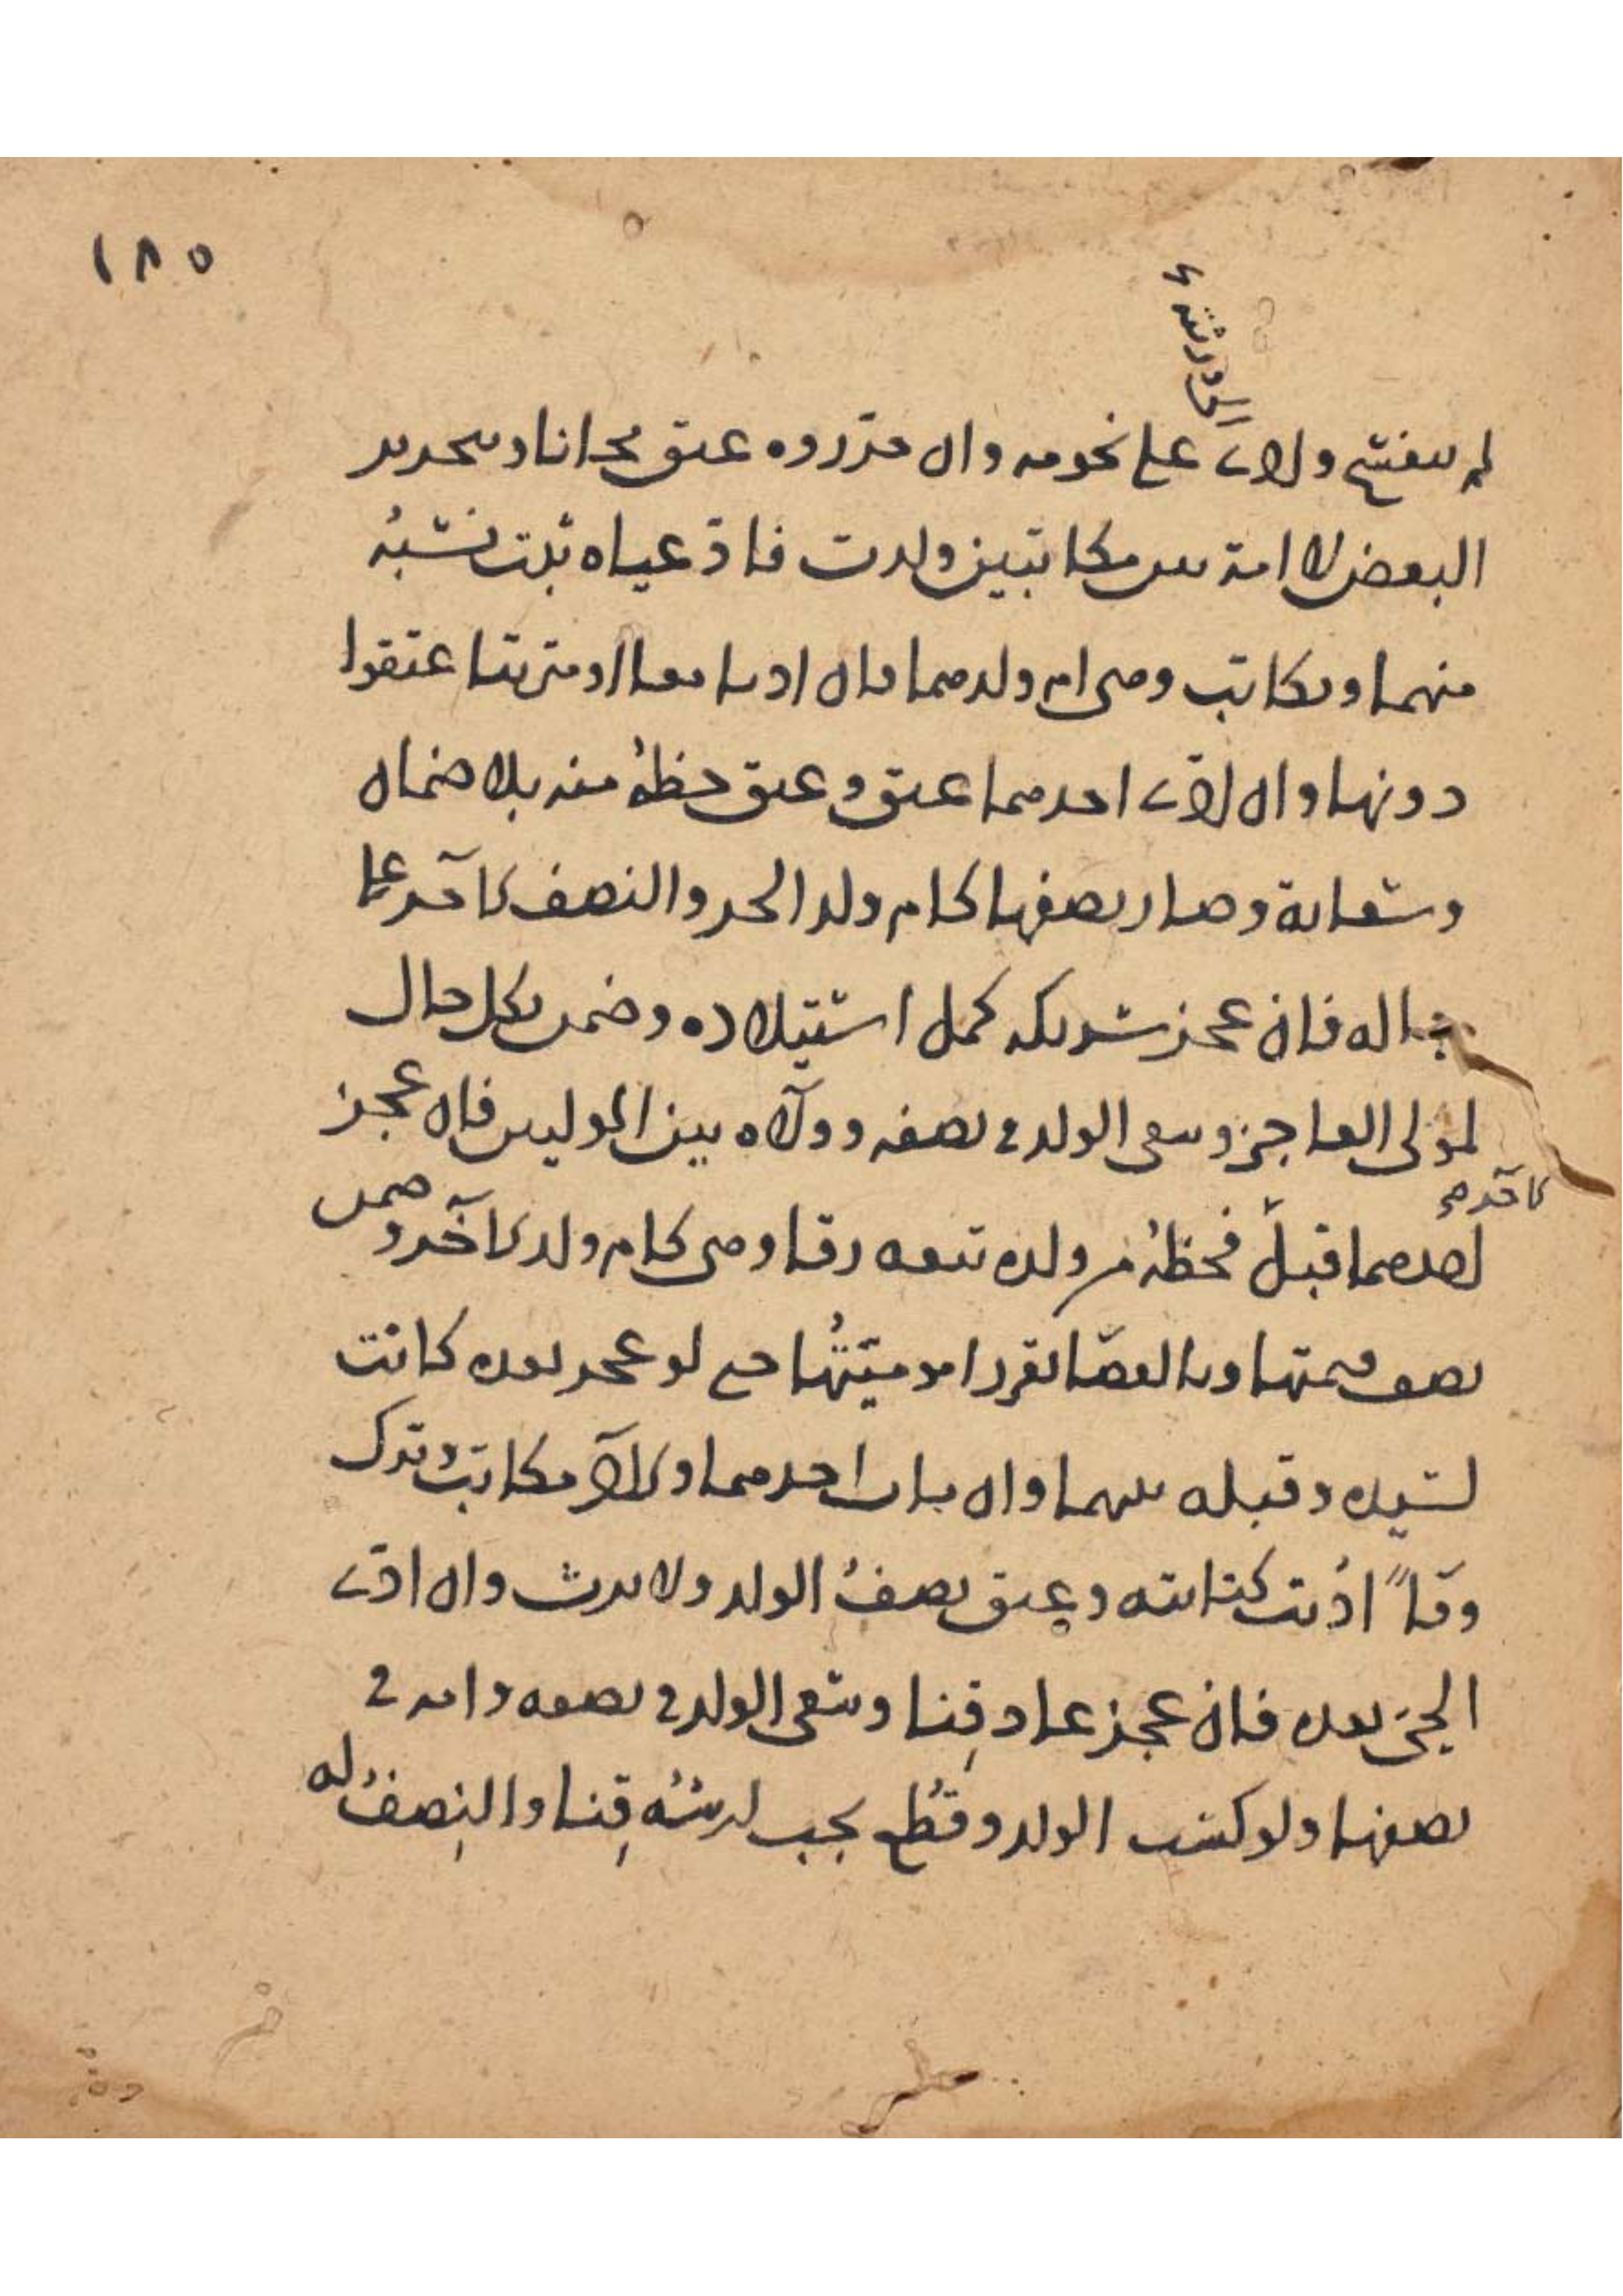 ١٨٥
لورثته
لم ينفسخ وادى على نجومه وان حرروه عتق مجانا وبتحرير
البعض لا امة بين مكاتبين ولدت فادعياه ثبت نسبه
منهما ويكاتب وهي ام ولدهما فان اديا معا او مترتبا عتقوا
دونها وان ادى احدهما عتق وعتق حظه منه بلا ضمان
وسعاية وصار نصفها كام ولد الحر والنصف لآخر على
حاله فان عجز شريكه كمل استيلاده وضمن بكل حال
لمولى العاجز وسعى الولد في نصفه وولاه بين الموليين فان عجز
الآخر
احدهما قبل فحظه من ولده تبعه رقا وهي كام ولد الآخر وضمن
نصف قيمتها وبالقضا تقرر اموميتها حتى لو عجز بعده كانت
لسيده وقبله بينهما وان مات احدهما والآخر مكاتب وترك
وفاً اديت كتابته وعتق نصف الولد ولا يرث وان ادى
الحي بعده فان عجز عاد قنا وسعى الولد في نصفه وامه في
نصفها ولو كسب الولد وقطع يجب ارشه قنا والنصف له